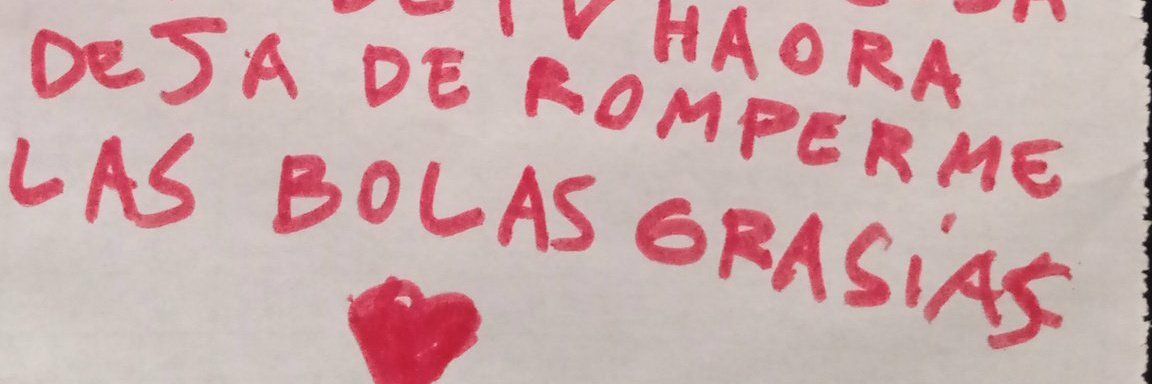 HAORA
DEJA DE ROMPERME
LAS BOLAS GRASÍAS